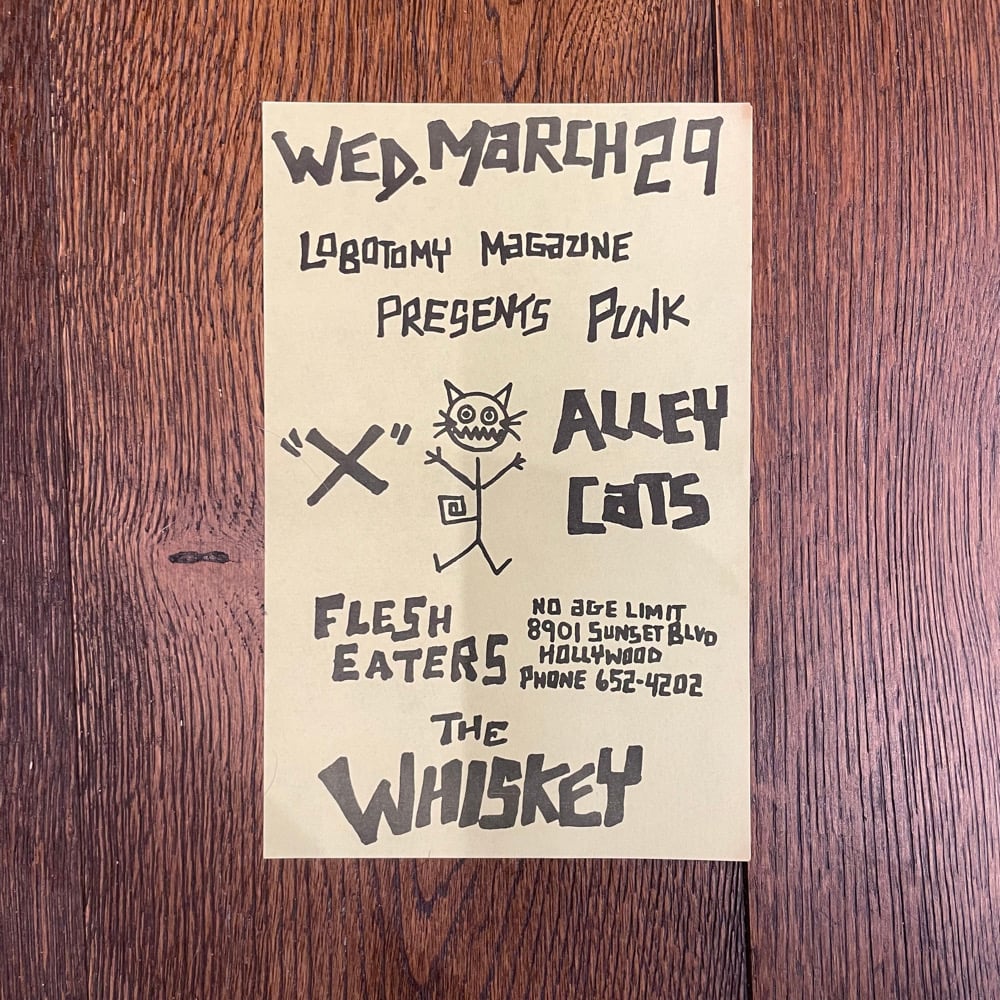 WED. MARCH 29
LOBOTOMY MAGAZINE
PRESENTS PUNK
"X"
ALLEY
CATS
FLESH
EATERS
NO AGE LIMIT
8901 SUNSET BLVD
HOLLYWOOD
PHONE 652-4202
THE
WHISKEY